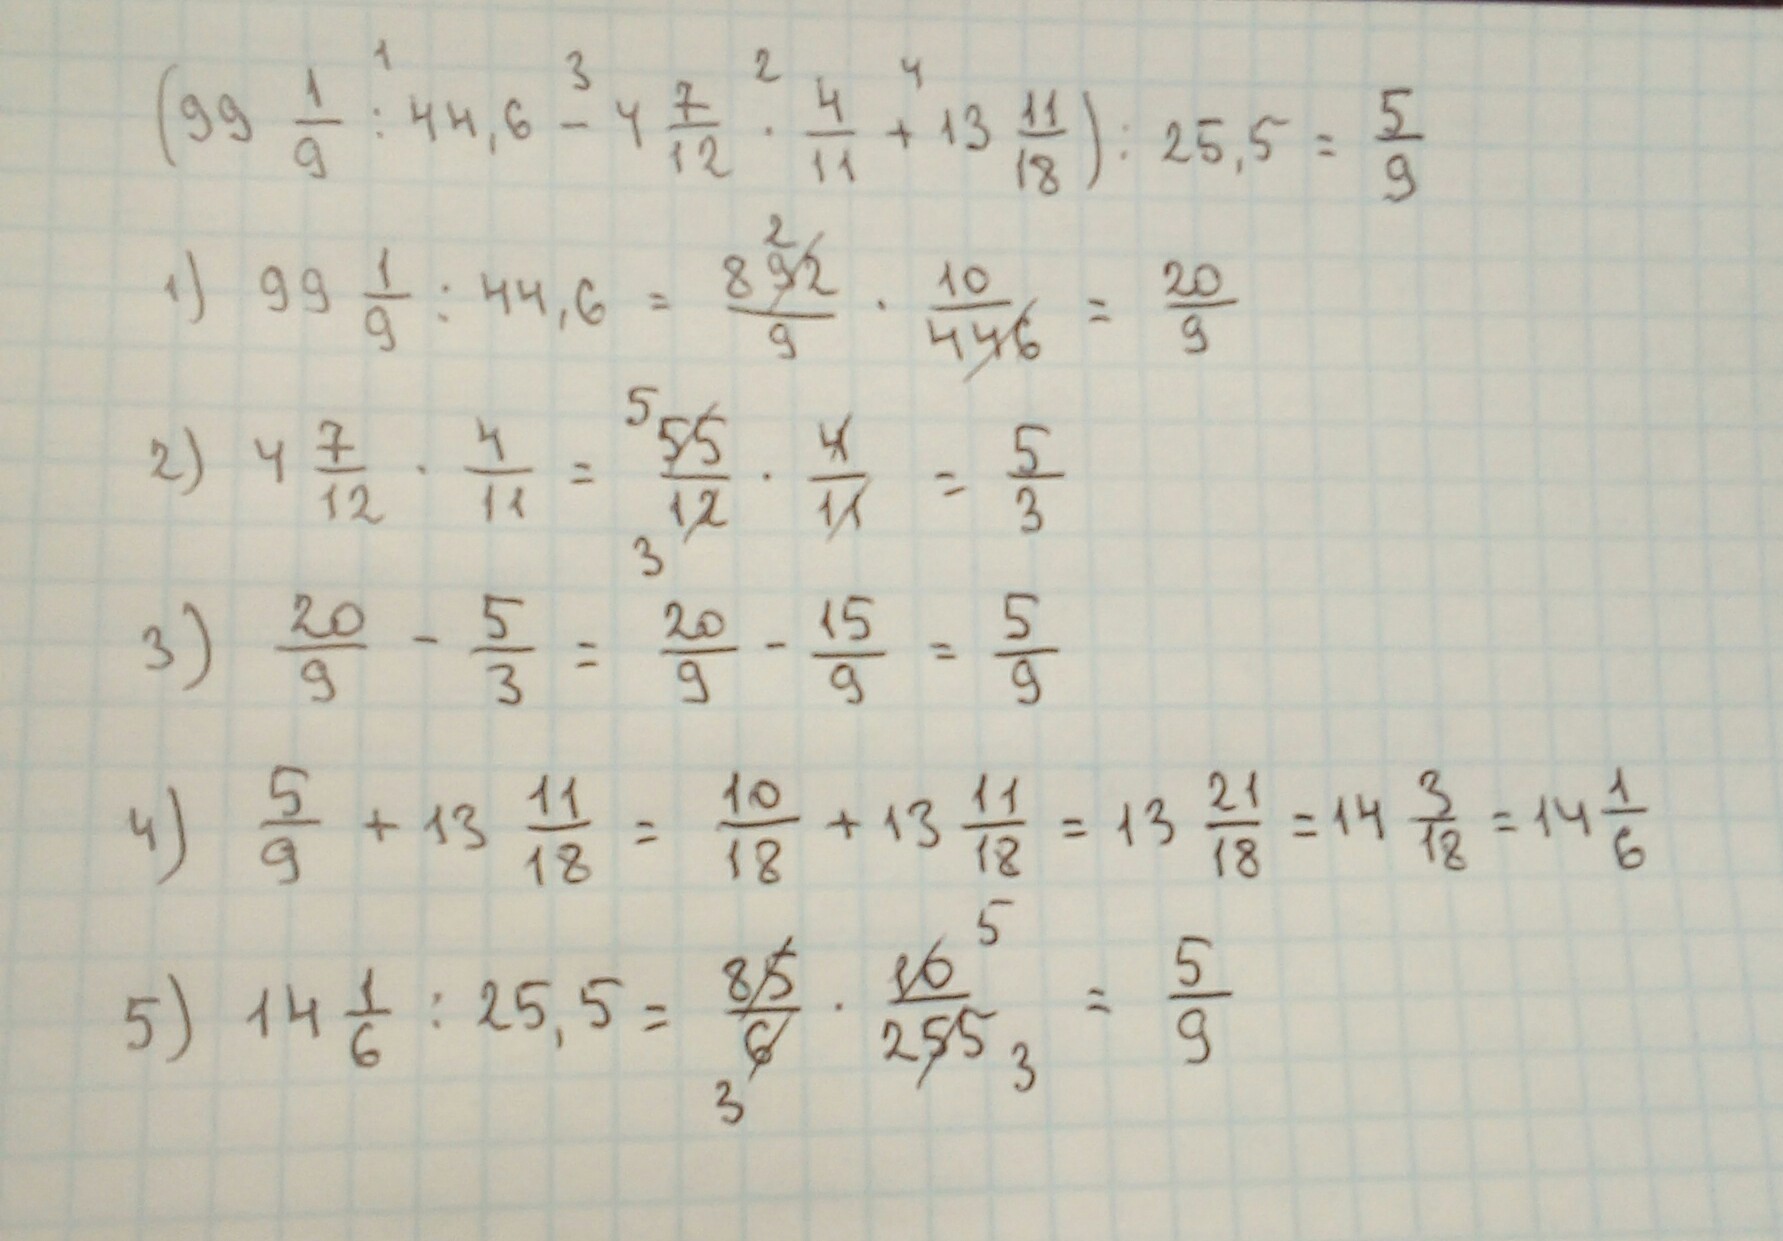 (99 1/9 : 44,6 - 4 7/12 · 4/11 + 13 11/18) : 25,5 = 5/9
1) 99 1/9 : 44,6 = 892/9 · 10/446 = 20/9
2) 4 7/12 · 4/11 = 55/12 · 4/11 = 5/3
3) 20/9 - 5/3 = 20/9 - 15/9 = 5/9
4) 5/9 + 13 11/18 = 10/18 + 13 11/18 = 13 21/18 = 14 3/18 = 14 1/6
5) 14 1/6 : 25,5 = 85/6 · 10/255 = 5/9